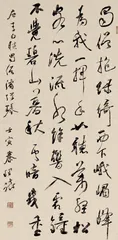 蜀僧抱綠綺西下峨嵋峰
為我一揮手如聽萬壑松
客心洗流水餘響入霜鐘
不覺碧山暮秋雲暗幾重
李白聽蜀僧濬彈琴
壬寅春